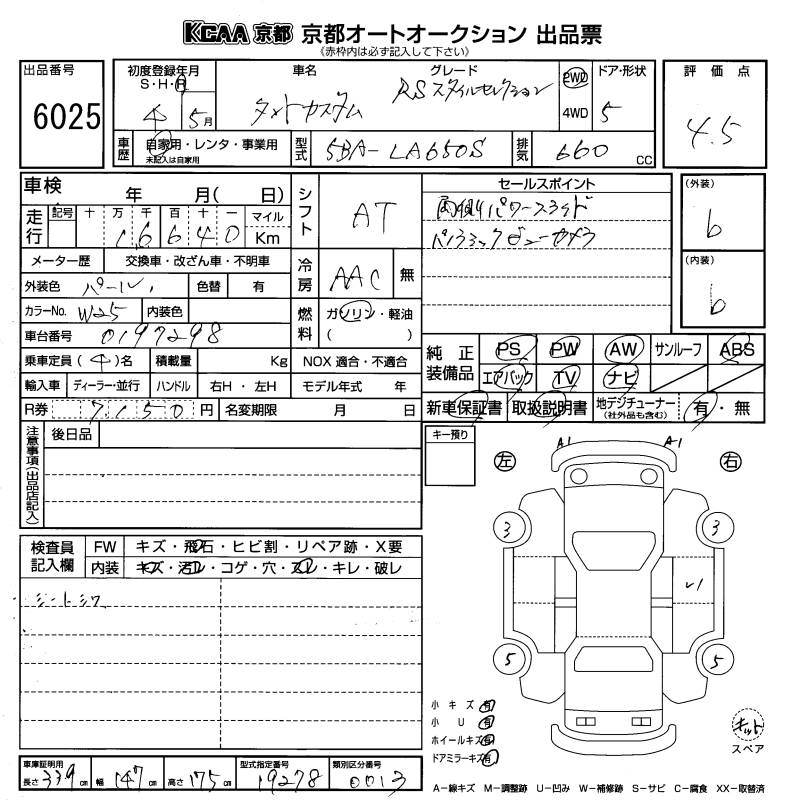 KCAA 京都 京都オートオークション 出品票
(赤枠内は必ず記入して下さい)
出品番号 初度登録年月 車名 グレード ドア・形状 評価点
S・H・R 2WD
6025 4 5月 タントカスタム RSスタイルセレクション 4WD 5 4.5
車歴 自家用・レンタ・事業用 型式 5BA-LA650S 排気 660 CC
未記入は自家用
車検 年 月( 日) シフト AT セールスポイント (外装)
走行 記号 十 万 千 百 十 一 マイル 両側パワースライド b
1 6 6 4 0 Km パノラミックビューカメラ
メーター歴 交換車・改ざん車・不明車 冷房 AAC 無 (内装)
外装色 パール 色替 有 b
カラーNo. W25 内装色 燃料 ガソリン・軽油
車台番号 0197298 ( )
乗車定員(4)名 積載量 Kg NOX 適合・不適合 純正装備品 PS PW AW サンルーフ ABS
輸入車 ディーラー・並行 ハンドル 右H・左H モデル年式 年 エアバック TV ナビ
R券 7150円 名変期限 月 日 新車保証書 取扱説明書 地デジチューナー(社外品も含む) 有・無
注意事項(出品店記入) 後日品 キー預り
A1 A1
左 右
検査員記入欄 FW キズ・飛石・ヒビ割・リペア跡・X要
内装 キズ・汚レ・コゲ・穴・スレ・キレ・破レ
シートシワ
3 3
5 5
小キズ 有
小U 有
ホイールキズ 有
ドアミラーキズ 有
キット
スペア
車庫証明用 長さ 339cm 幅 147cm 高さ 175cm 型式指定番号 19278 類別区分番号 0013
A-線キズ M-調整跡 U-凹み W-補修跡 S-サビ C-腐食 XX-取替済